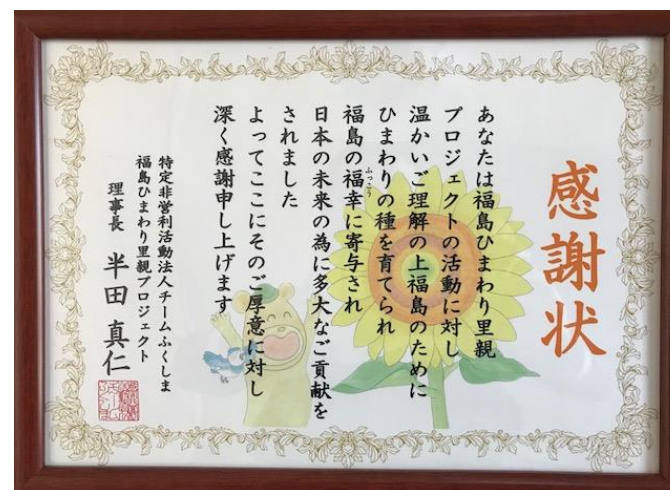 感謝状
あなたは福島ひまわり里親
プロジェクトの活動に対し
温かいご理解の上福島のために
ひまわりの種を育てられ
福島の福幸に寄与され
ふっこう
日本の未来の為に多大なご貢献を
されました
よってここにそのご厚意に対し
深く感謝申し上げます
特定非営利活動法人チームふくしま
福島ひまわり里親プロジェクト
理事長 半田真仁